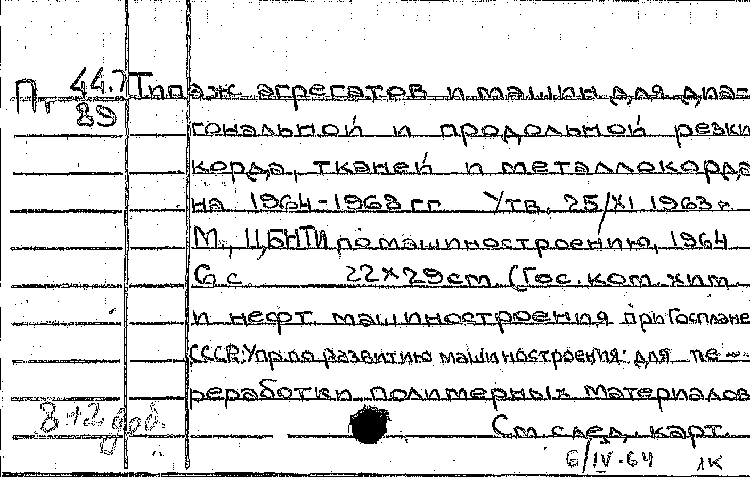 Пт 44.7 Типаж агрегатов и машин для диа-
89
гональной и продольной резки
корда, тканей и металлокорда
на 1964-1968 гг Утв. 25/XI 1963г.
М., ЦБНТИ по машиностроению, 1964
6 с 22x29cm (Гос. ком. хим
и нефт. машиностроения при Госплане
СССР. Упр. по развитию машиностроения: для пе-
реработки полимерных материалов
8+2 доб.
См. след. карт.
6/IV-64 ЛК